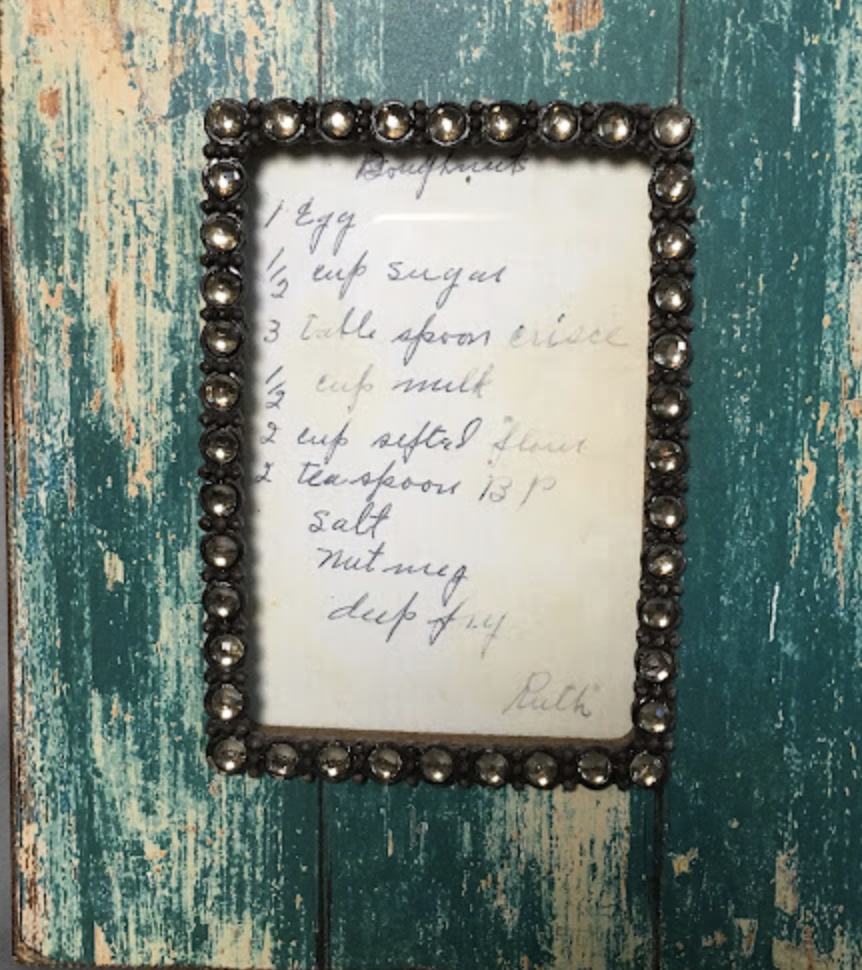 Doughnuts
1 Egg
1/2 cup sugar
3 table spoon crisco
1/2 cup milk
2 cup sifted flour
2 teaspoon B P
salt
nutmeg
deep fry
Ruth